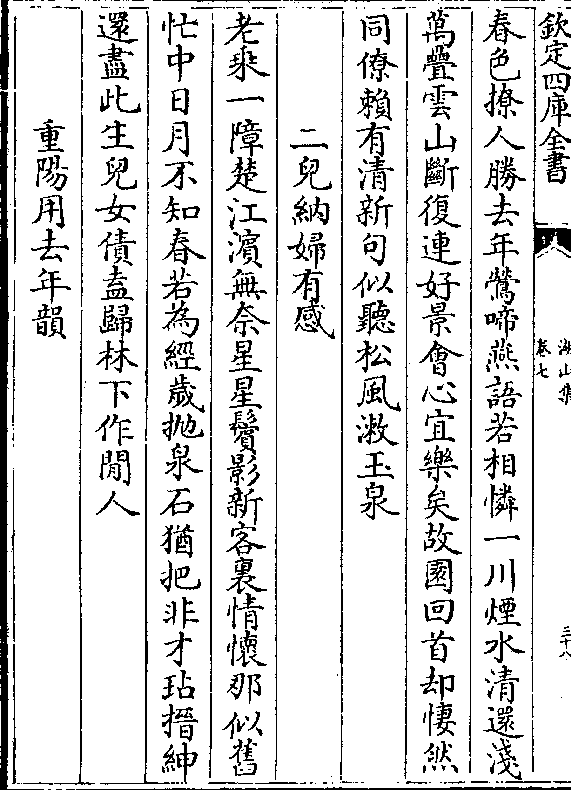 欽定四庫全書
湖山集
卷七
三十八
春色撩人勝去年鶯啼燕語若相憐一川煙水清還淺
萬疊雲山斷復連好景會心宜樂矣故園回首却悽然
同僚賴有清新句似聽松風漱玉泉
二兒納婦有感
老乘一障楚江濵無奈星星鬢影新客裏情懷那似舊
忙中日月不知春若為經歲抛泉石猶把非才玷搢紳
還盡此生兒女債盍歸林下作閒人
重陽用去年韻